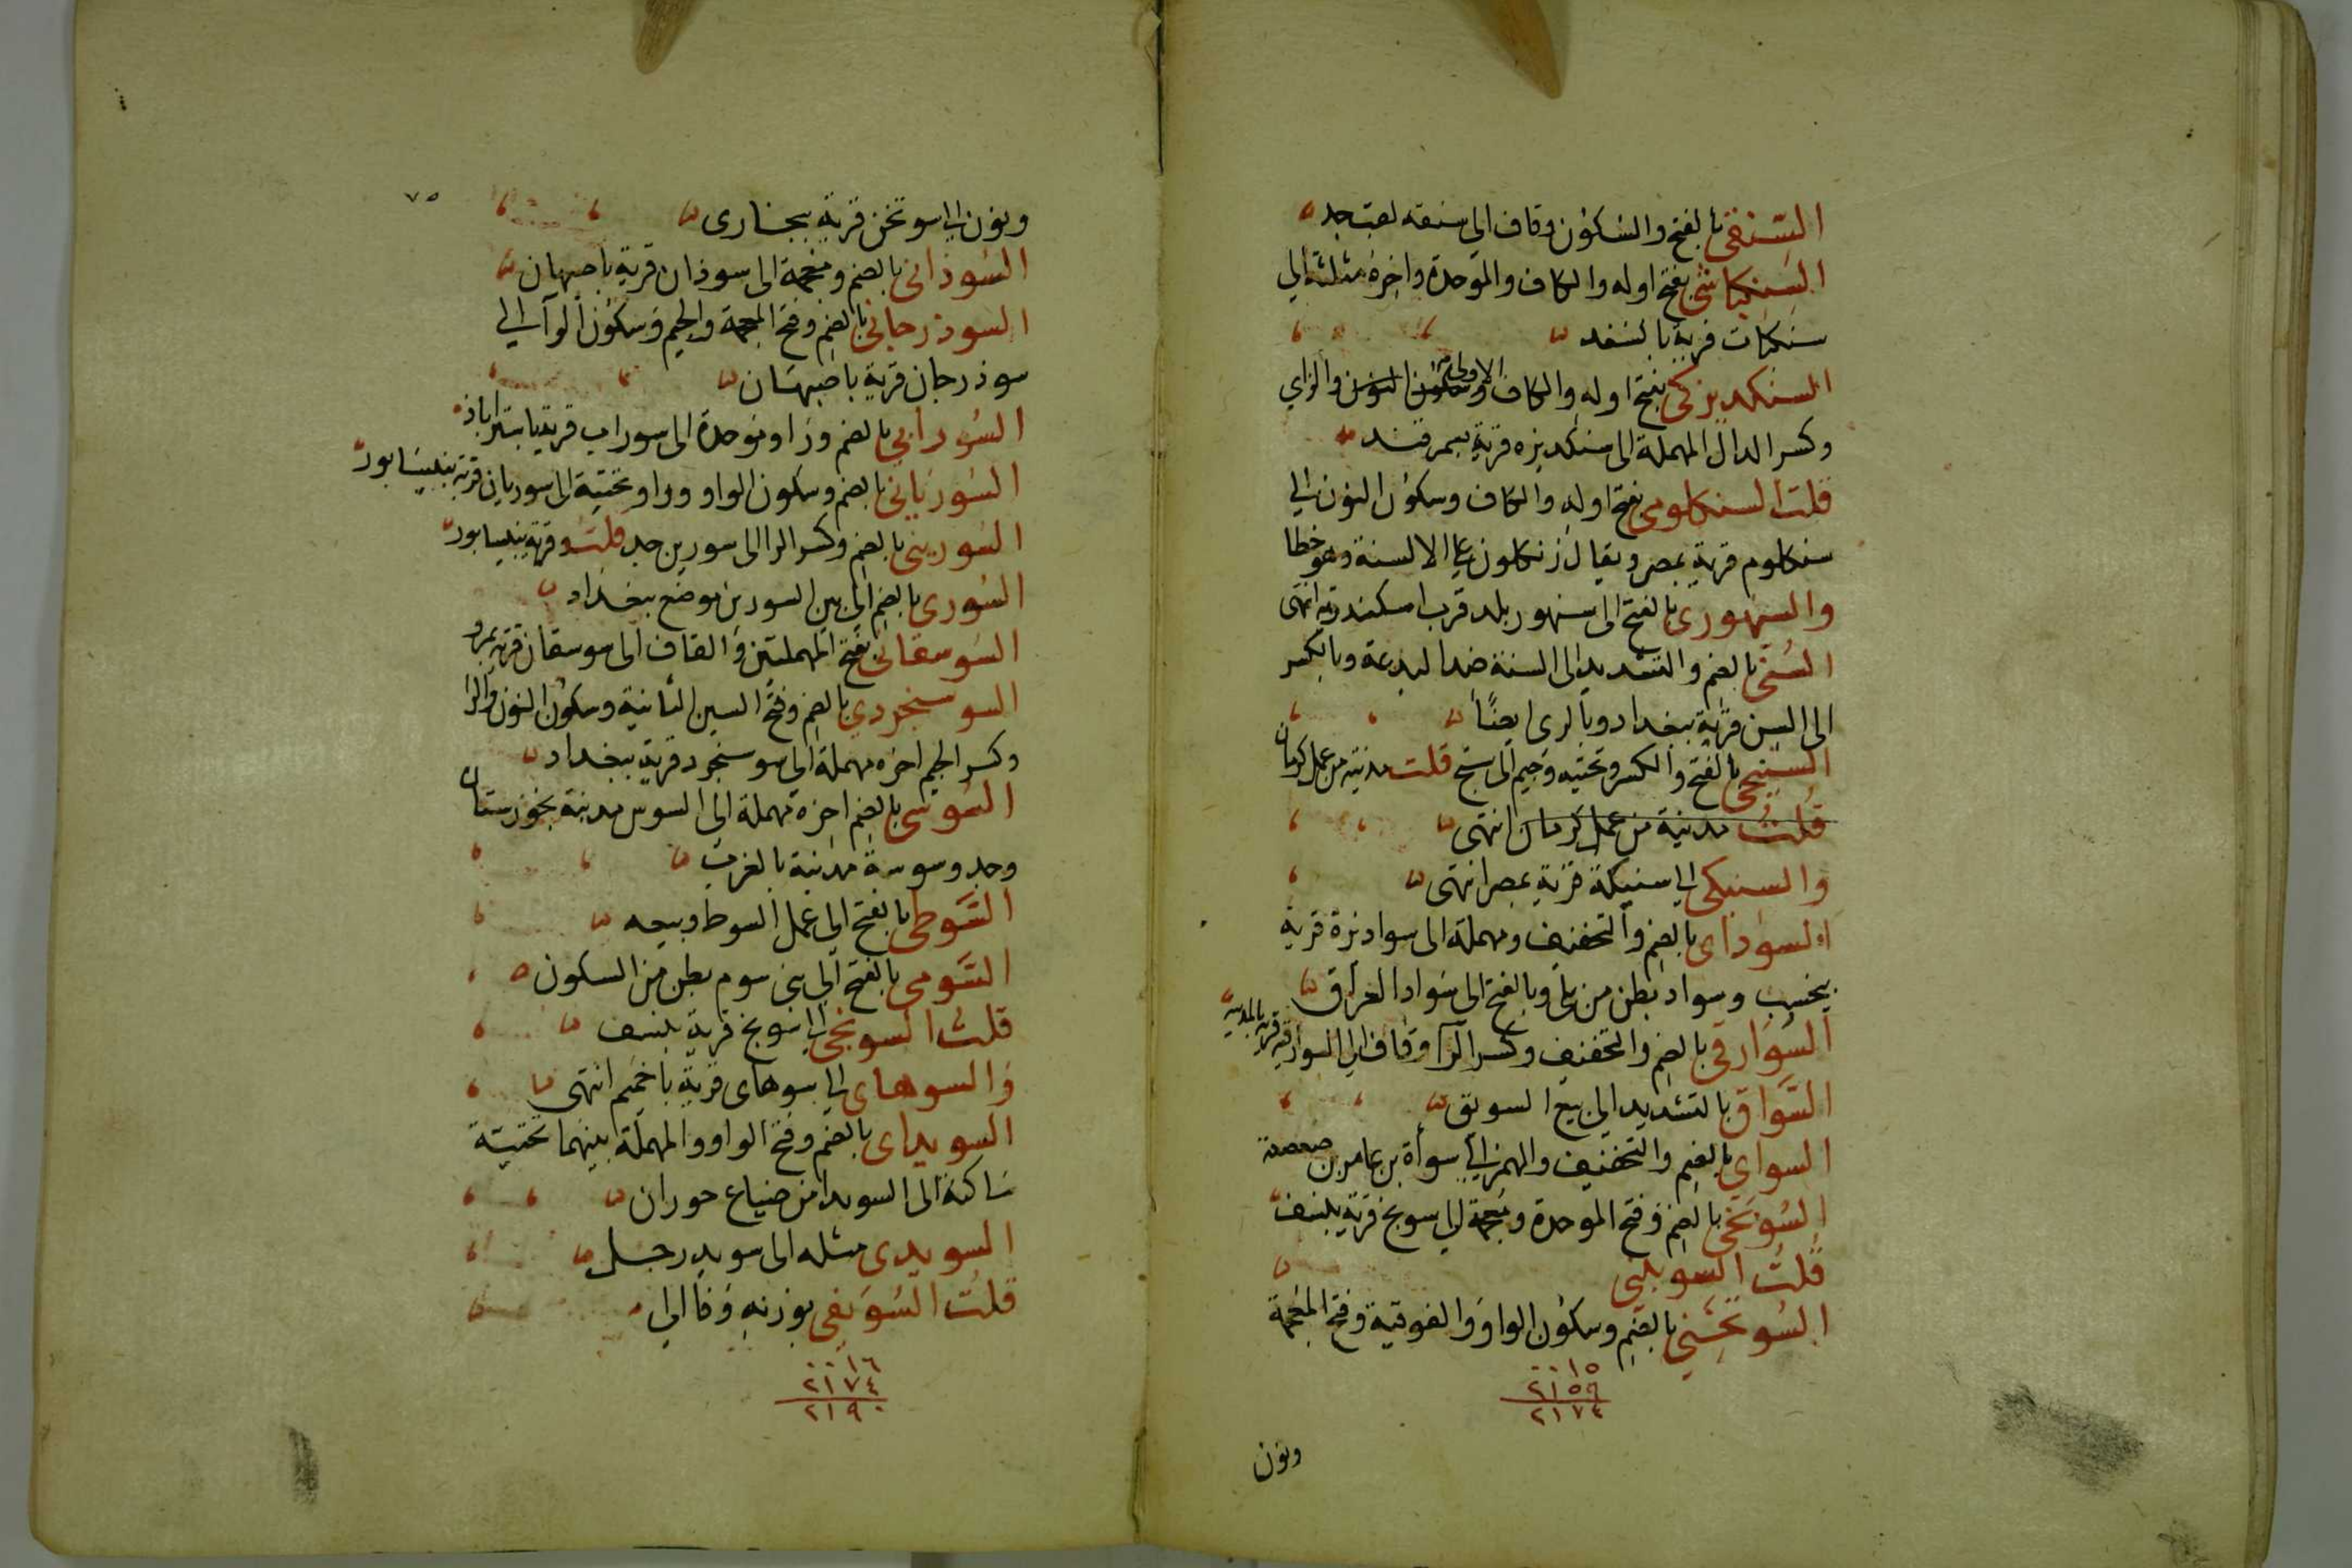 السنقى بالفتح والسكون وقاف الى سنقه لعب جد
السنكباثى بفتح اوله والكاف والموحدة واخره مثلثة الى
سنكباث قرية بالسغد
السنكديزكى بفتح اوله والكاف الاولى وسكون النون والزاى
وكسر الدال المهملة الى سنكديزه قرية بسمرقند
قلت السنكلومى بفتح اوله والكاف وسكون النون الى
سنكلوم قرية بمصر ويقال زنكلون على الالسنة وهو خطا
والسنهورى بالفتح الى سنهور بلد قرب اسكندرية انتهى
السنى بالضم والتشديد الى السنة ضد البدعة وبالكسر
الى السن قرية ببغداد وبالرى ايضًا
السنيجى بالفتح والكسر وتحتيه وجيم الى سنيج قلت مدينة من عمل كرمان
قلت مدينة من عمل كرمان انتهى
والسنيكى الى سنيكة قرية بمصر انتهى
السوداى بالضم والتخفيف ومهملة الى سواد نزة قرية
بنخشب وسواد بطن من بلى وبالفتح الى سواد العراق
السوارقى بالضم والتخفيف وكسر الرآ وقاف الى السوارقيه قرية بالمدينة
السواق بالتشديد الى بيع السويق
السواى بالضم والتخفيف والهمز الى سوأة بن عامر بن صعصعة
السوبخى بالضم وفتح الموحدة ومعجمة الى سوبخ قرية بنسف
قلت السوبينى
السوتخنى بالضم وسكون الواو والفوقية وفتح المعجمة
٠٠١٥
٢١٥٩
٢١٧٤
ونون
٧٥
ونون الى سوتخن قرية ببخارى
السوذانى بالضم ومعجمة الى سوذان قرية باصبهان
السوذرجانى بالضم وفتح المعجمة والجيم وسكون الرآ الى
سوذرجان قرية باصبهان
السورابى بالضم ورا وموحدة الى سوراب قرية باستراباذ
السوريانى بالضم وسكون الواو ورا وتحتية الى سوريان قرية بنيسابور
السورينى بالضم وكسر الرا الى سورين جد قلت وقرية بنيسابور
السورى بالضم الى بين السورين موضع ببغداد
السوسقانى بفتح المهملتين والقاف الى سوسقان قرية بمرو
السوسنجردى بالضم وفتح السين الثانية وسكون النون والرا
وكسر الجيم اخره مهملة الى سوسنجرد قرية ببغداد
السوسى بالضم اخره مهملة الى السوس مدينة بخوزستان
وجد وسوسة مدينة بالغرب
السوطى بالفتح الى عمل السوط وبيعه
السومى بالفتح الى بنى سوم بطن من السكون
قلت السونجى الى سونج قرية بنسف
والسوهاى الى سوهاى قرية باخميم انتهى
السويداى بالضم وفتح الواو والمهملة بينهما تحتية
ساكنة الى السويدا من ضياع حوران
السويدى مثله الى سويد رجل
قلت السويفى بوزنه وفا الى
٠٠١٦
٢١٧٤
٢١٩٠